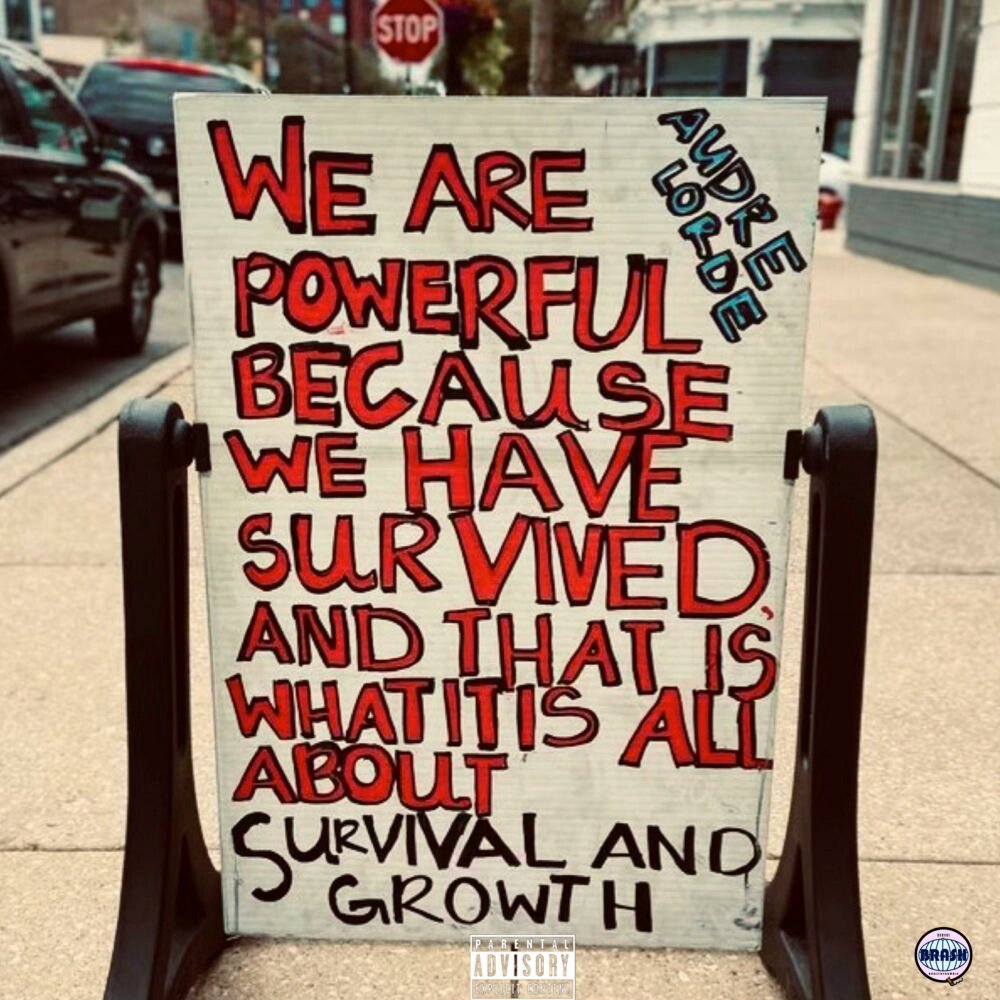 STOP
AUDRE
LORDE
WE ARE
POWERFUL
BECAUSE
WE HAVE
SURVIVED,
AND THAT IS
WHAT IT IS ALL
ABOUT
SURVIVAL AND
GROWTH
PARENTAL
ADVISORY
EXPLICIT CONTENT
BRASH